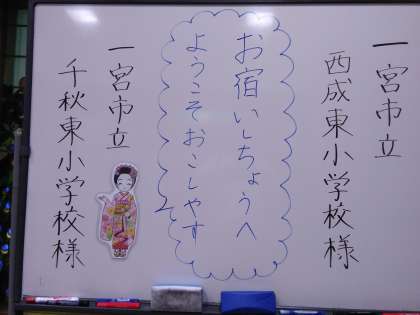 一宮市立
西成東小学校様
お宿いしちょうへ
ようこそおこしやす
一宮市立
千秋東小学校様